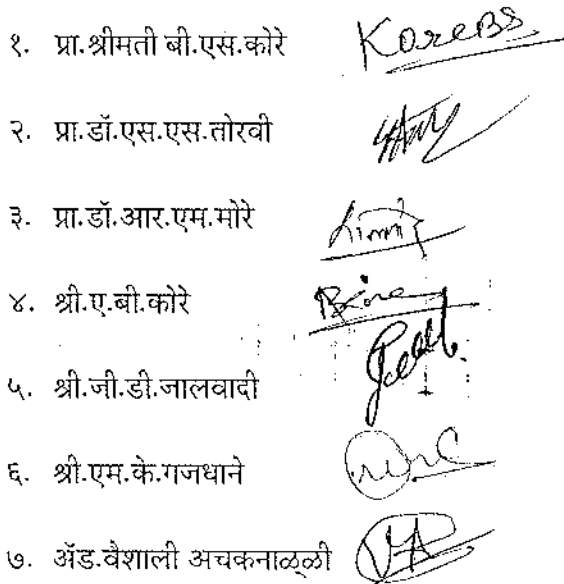 १. प्रा.श्रीमती बी.एस.कोरे KoreBS
२. प्रा.डॉ.एस.एस.तोरवी
३. प्रा.डॉ.आर.एम.मोरे
४. श्री.ए.बी.कोरे
५. श्री.जी.डी.जालवादी
६. श्री.एम.के.गजधाने
७. ॲड.वैशाली अचकनाळ्ळी